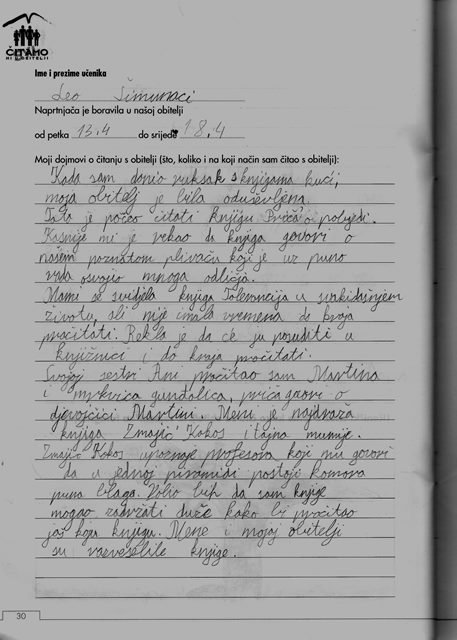 ČITAMO
MI U OBITELJI
Ime i prezime učenika
Leo Šimunaci
Naprtnjača je boravila u našoj obitelji
od petka 13.4 do srijede 18.4
Moji dojmovi o čitanju s obitelji (što, koliko i na koji način sam čitao s obitelji):
Kada sam donio ruksak s knjigama kući,
moja obitelj je bila oduševljena.
Tata je počeo čitati knjigu Priča o pobjedi.
Kasnije mi je rekao da knjiga govori o
našem poznatom plivaču koji je uz puno
rada osvojio mnoga odličja.
Mami se svidjela knjiga Tolerancija u svakidašnjem
životu, ali nije imala vremena do kraja
pročitati. Rekla je da će ju posuditi u
knjižnici i do kraja pročitati.
Svojoj sestri Ani pročitao sam Martina
i mrkvica gunđalica, priča govori o
djevojčici Martini. Meni je najdraža
knjiga Zmajić Kokos i tajna mumije.
Zmajić Kokos upoznaje profesora koji mu govori
da u jednoj piramidi postoji komora
puna blaga. Volio bih da sam knjige
mogao zadržati duže kako bi pročitao
još koju knjigu. Mene i mojoj obitelji
su razveselile knjige.
30